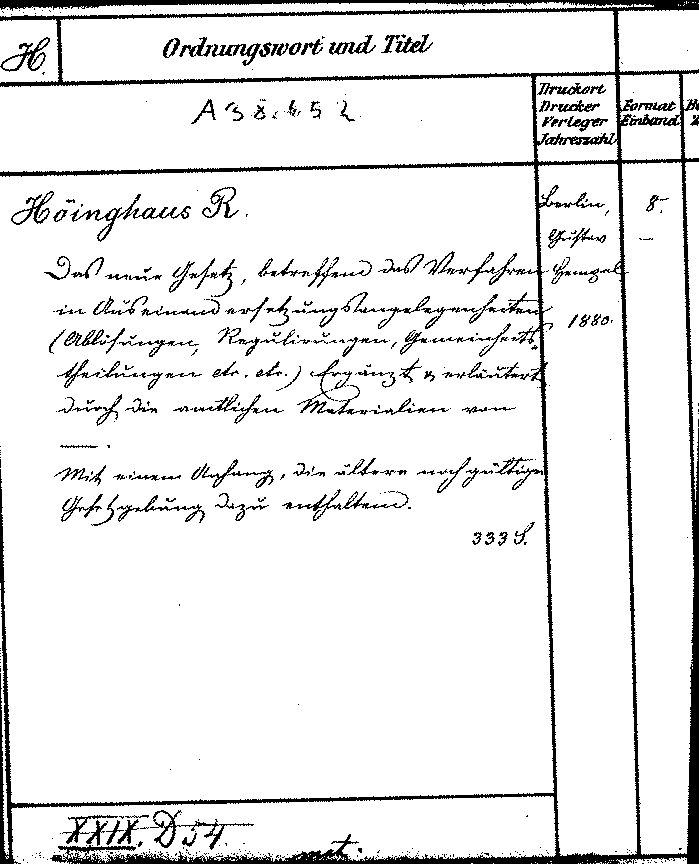 H.
Ordnungswort und Titel
A 38.652
Druckort
Drucker
Verleger
Jahreszahl
Format
Einband
Höinghaus R.
Berlin,
Gustav
Hempel
1880.
8°
—
Das neue Gesetz, betreffend das Verfahren
in Auseinandersetzungsangelegenheiten
(Ablösungen, Regulirungen, Gemeinheits-
theilungen etc. etc.) Ergänzt & erläutert
durch die amtlichen Materialien von
——.
Mit einem Anhang, die ältere noch gültige
Gesetzgebung dazu enthaltend.
333 S.
XXIX. D 54.